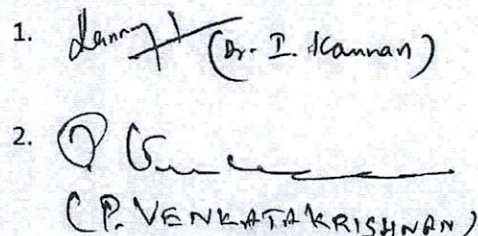 1. (Dr. I. Kannan)
2.
(P. VENKATAKRISHNAN)